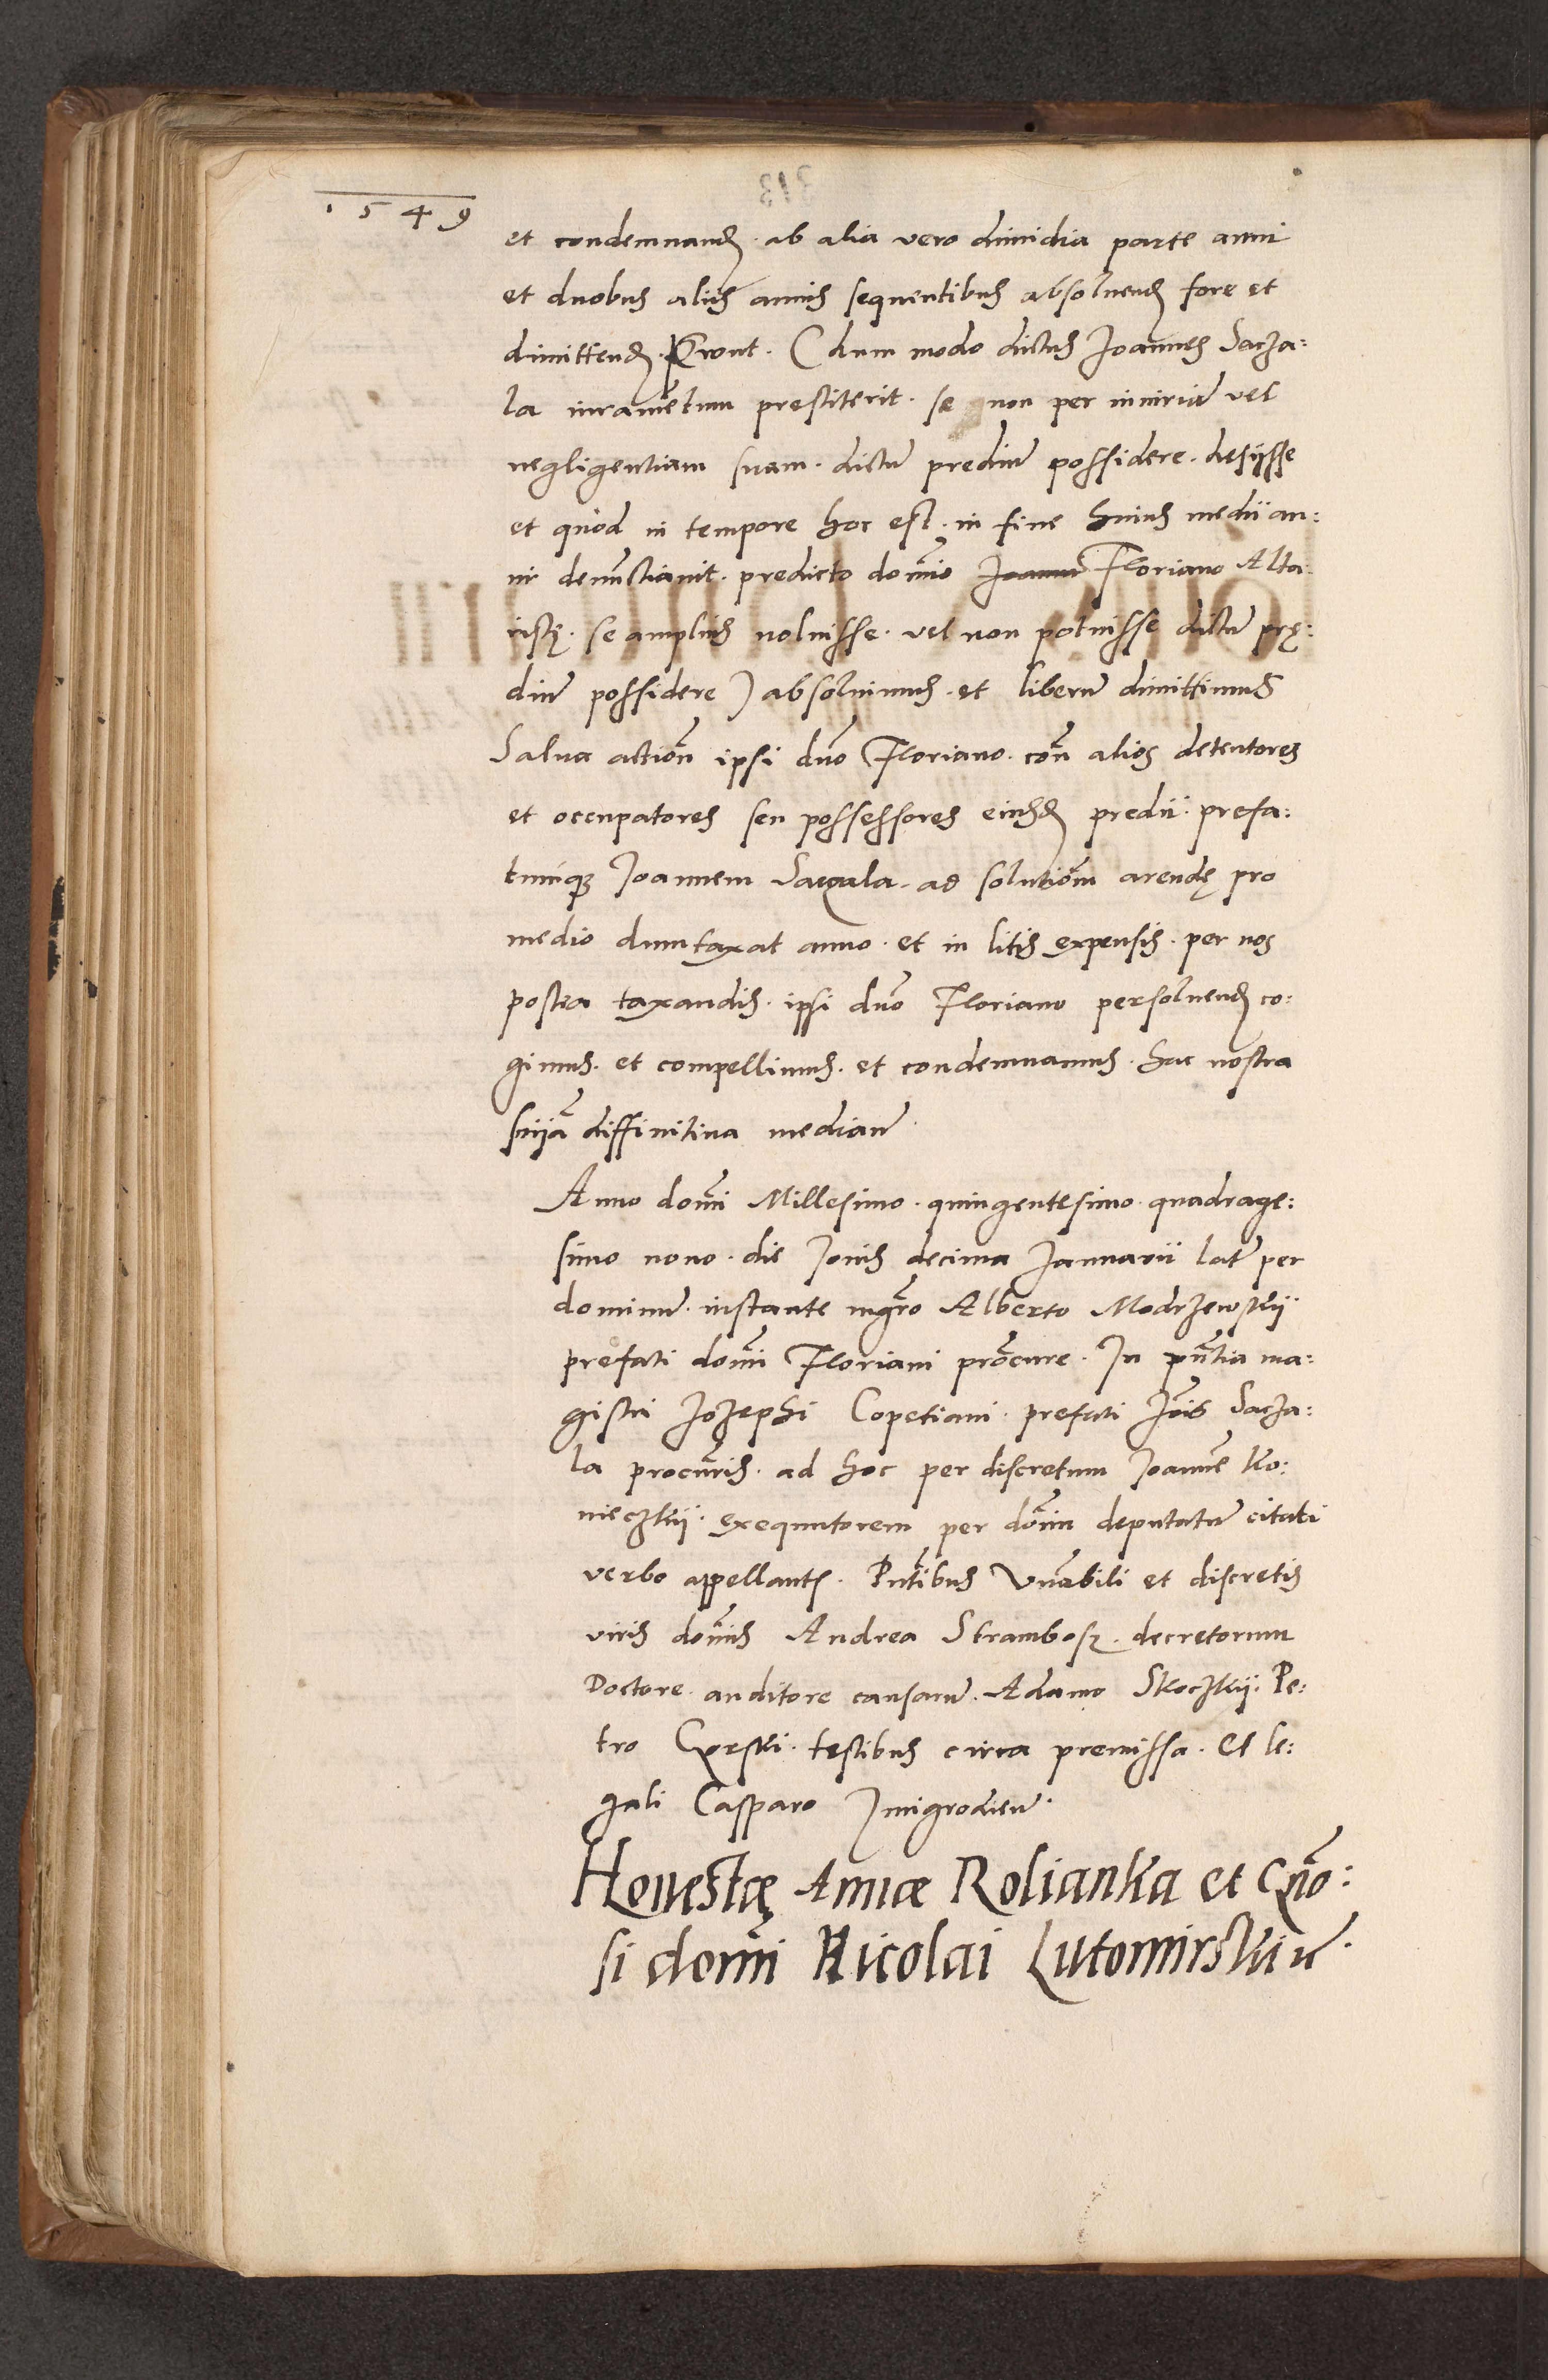 1549
et condemnand. ab alia vero dimidia parte anni
et duobus aliis annis sequentibus absoluend fore et
dimittend. Prout. (dum modo dictus Joannes Sacza:
la iuramentum prestiterit. se non per iniuriã vel
negligentiam suam. dictũ prediũ possidere. desijsse
et quod in tempore hoc est. in fine huius medii an:
ni denũctiauit. predicto domĩo Floriano Alta:
ristę. se amplius noluisse. vel non potuisse dictũ prę:
diũ possidere) absoluimus. et liberũ dimittimus
Salua actioñ ipsi dño Floriano. coñ alios detentores
et occupatores seu possessores eiusd predii. prefa:
tumq Joannem Saczala. ad solutioñm arendę pro
medio dumtaxat anno. et in litis expensis. per nos
postea taxandis. ipsi dño Floriano persoluend co:
gimus. et compellimus. et condemnamus. hac nostra
snija diffinitiua mediañ.
Anno domĩ Millesimo. quingentesimo. quadrage:
simo nono. die Jouis decima Januarii lat per
dominũ. instante mgro Alberto Modrzewskij
prefati domĩ Floriani procure. In pñtia ma:
gistri Jozephi Copetiani. prefati Jois Sacza:
la procuris. ad hoc per discretum Joannẽ Ko:
nieczkij. exequutorem per doñm deputatũ citati
verbo appellant. Pntibus Vnabili et discretis
viris domĩs Andrea Strambosz. decretorum
Doctore. auditore causarũ. Adamo Skoczkij. Pe:
tro Gorski. testibus circa premissa. Et le:
gali Casparo Jmigrodieñ.
Honestæ Annæ Rolianka et Gño:
si domĩ Nicolai Lutomirskiu.